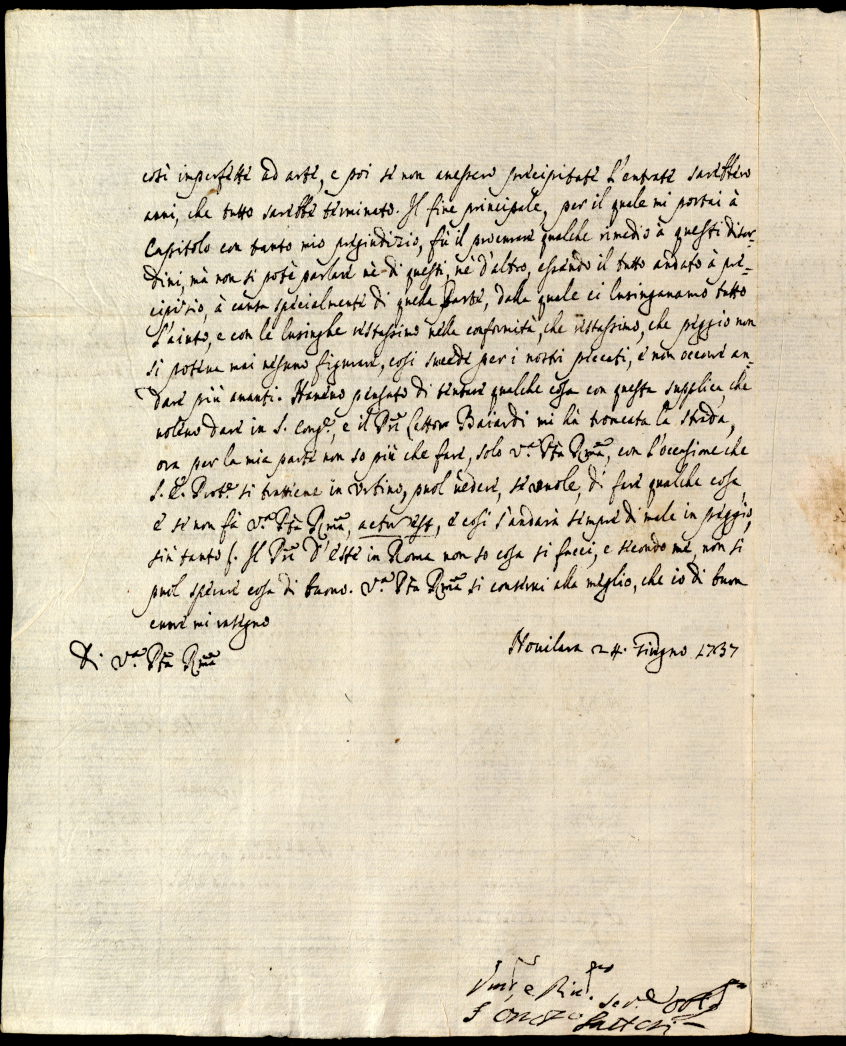 così imperfetti ad arte, e poi se non avessero precipitate l'entrate sarebbero
anni, che tutto sarebbe terminato. Il fine principale, per il quale mi portai à
Capitolo con tanto mio pregiudizio, fù il procurare qualche rimedio à questi disor-
dini, mà non si potè parlare nè di questi, nè d'altro, essendo il tutto andato à pre-
cipizio, à causa specialmente di quella Parte, dalla quale ci lusingavamo tutto
l'aiuto, e con le lusinghe restassimo nella conformità, che restassimo, che peggio non
si poteva mai nesuno figurare, così succede per i nostri peccati, e non occorre an-
dare più avanti. Havevo pensato di tentare qualche cosa con questa supplica, che
volevo dare in S. Cong.e, e il Pre Lettore Baiardi mi hà troncata la strada,
ora per la mia parte non so più che fare, solo V.a Ptà Rma, con l'occasione che
S. E. Prot.e si trattiene in Urbino, puol vedere, se vuole, di fare qualche cosa,
e se non fà V.a Ptà Rma, actum est, e così s'andarà sempre di male in peggio,
sin tanto /: Il Pre D'Este in Roma non so cosa si facci, e secondo me, non si
puol sperare cosa di buono. V.a Ptà Rma si conservi alla meglio, che io di buon
cuore mi rasegno
Di V.a Ptà Rma
Novilara 24. Giugno 1737